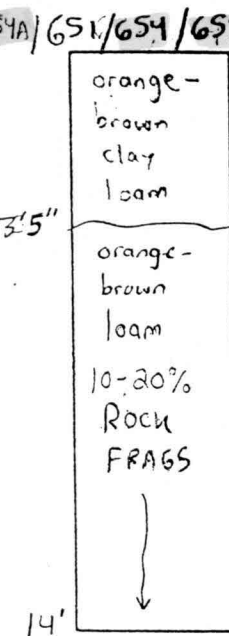 654 /
orange-
brown
clay
loam
3'5"
orange-
brown
loam
10-20%
ROCK
FRAGS
14'